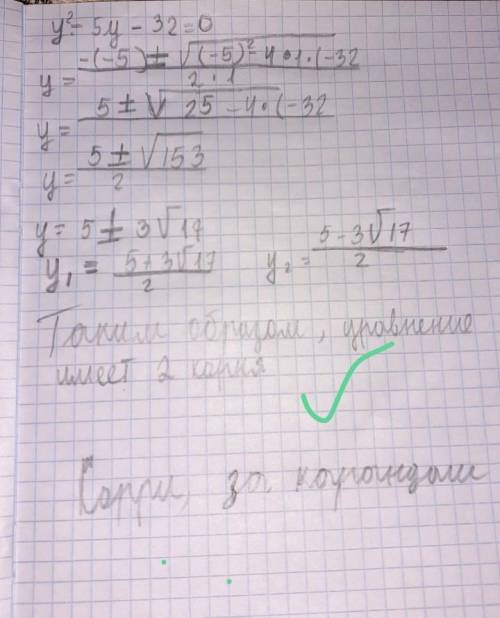 y² - 5y - 32 = 0
y = -(-5) ± √(-5)² - 4·1·(-32 / 2·1
y = 5 ± √25 - 4·(-32
y = 5 ± √153 / 2
y = 5 ± 3√17
y₁ = 5 + 3√17 / 2 y₂ = 5 - 3√17 / 2
Таким образом, уравнение
имеет 2 корня
Сорри, за карандаш